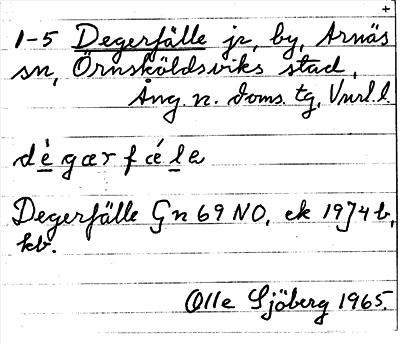 +
1-5 Degerfjälle jr, by, Arnäs
sn, Örnsköldsviks stad,
Ång. n. doms. tg, Vnrl. l.
dègærfǽla
Degerfjälle Gn 69 NO, ek 1974 b,
kb.
Olle Sjöberg 1965.